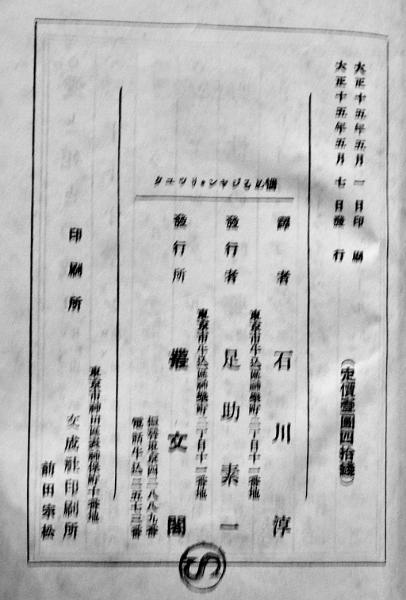 大正十五年五月一日印刷
大正十五年五月七日發行
（定價壹圓四拾錢）
譯者 石川淳
東京市牛込區神樂町二丁目十一番地
發行者 足助素一
東京市牛込區神樂町二丁目十一番地
發行所 叢文閣
振替東京四二八八九番
電話牛込二五七三番
印刷所
東京市神田區表神保町十番地
文成社印刷所
前田宗松
S